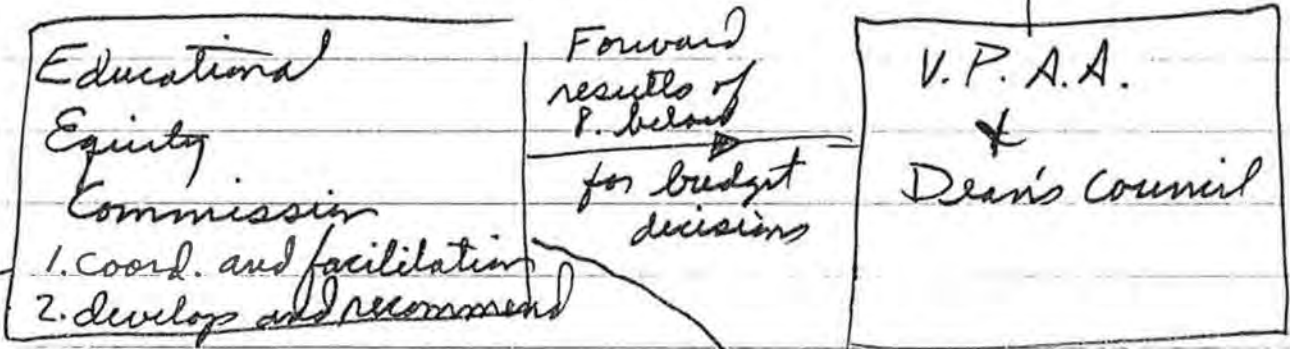 Educational
Equity
Commission
1. coord. and facilitation
2. develop and recommend
Forward
results of
8. below
for budget
decisions
V.P.A.A.
&
Dean's Council